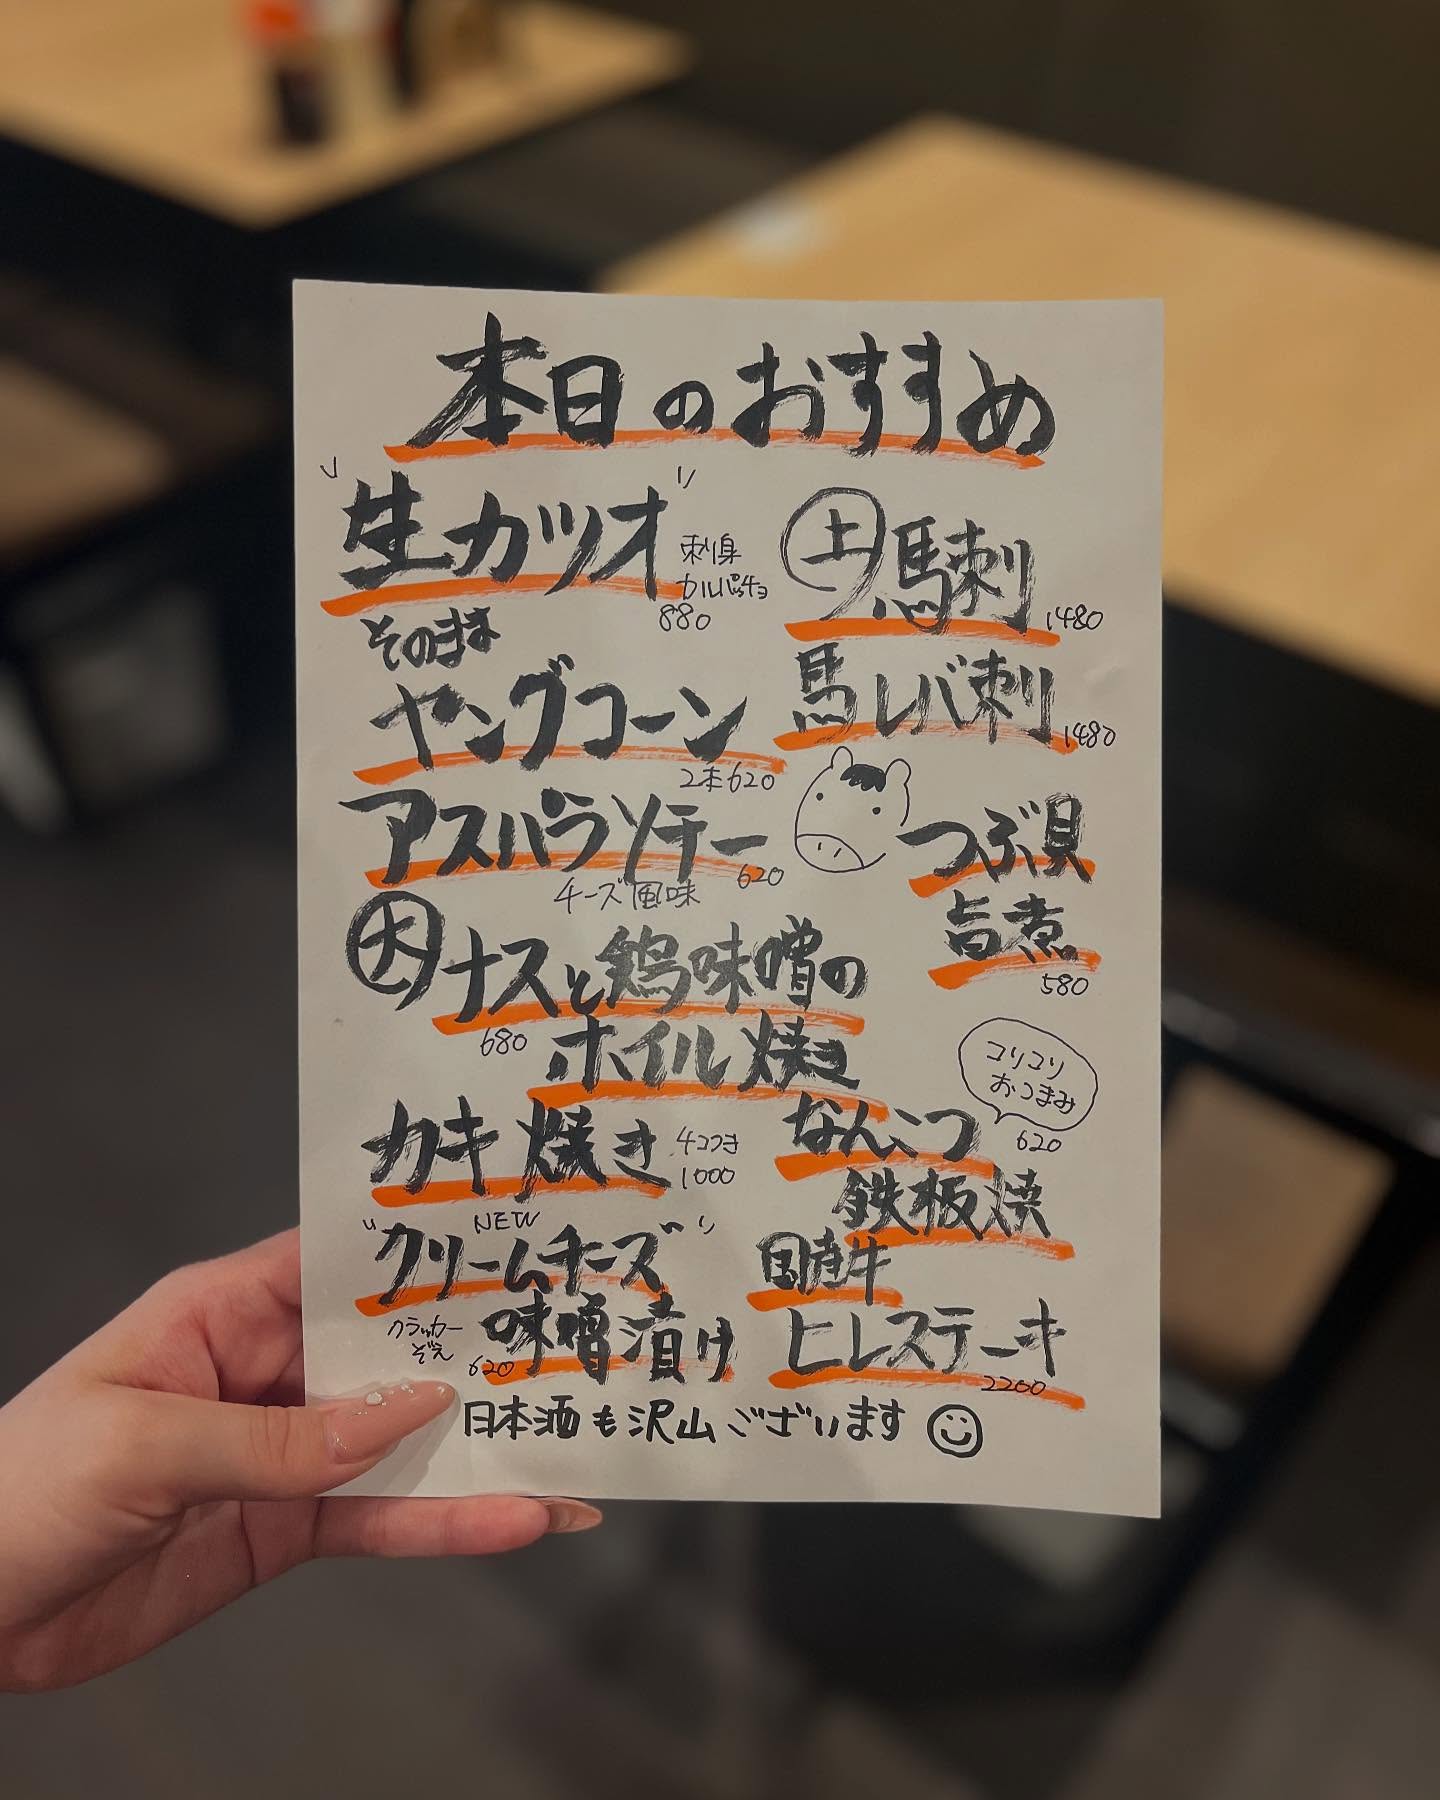 本日のおすすめ
"生カツオ"
刺身
カルパッチョ
880
そのまま
ヤングコーン
2本620
アスパラソテー
620
チーズ風味
大ナスと鶏味噌の
680
ホイル焼き
カキ焼き
4コつき
1000
NEW
"クリームチーズ"
クラッカー
ぞえ
620
味噌漬け
上馬刺
1480
馬レバ刺
1480
つぶ貝
旨煮
580
コリコリ
おつまみ
なんこつ
620
鉄板焼
国産牛
ヒレステーキ
2200
日本酒も沢山ございます